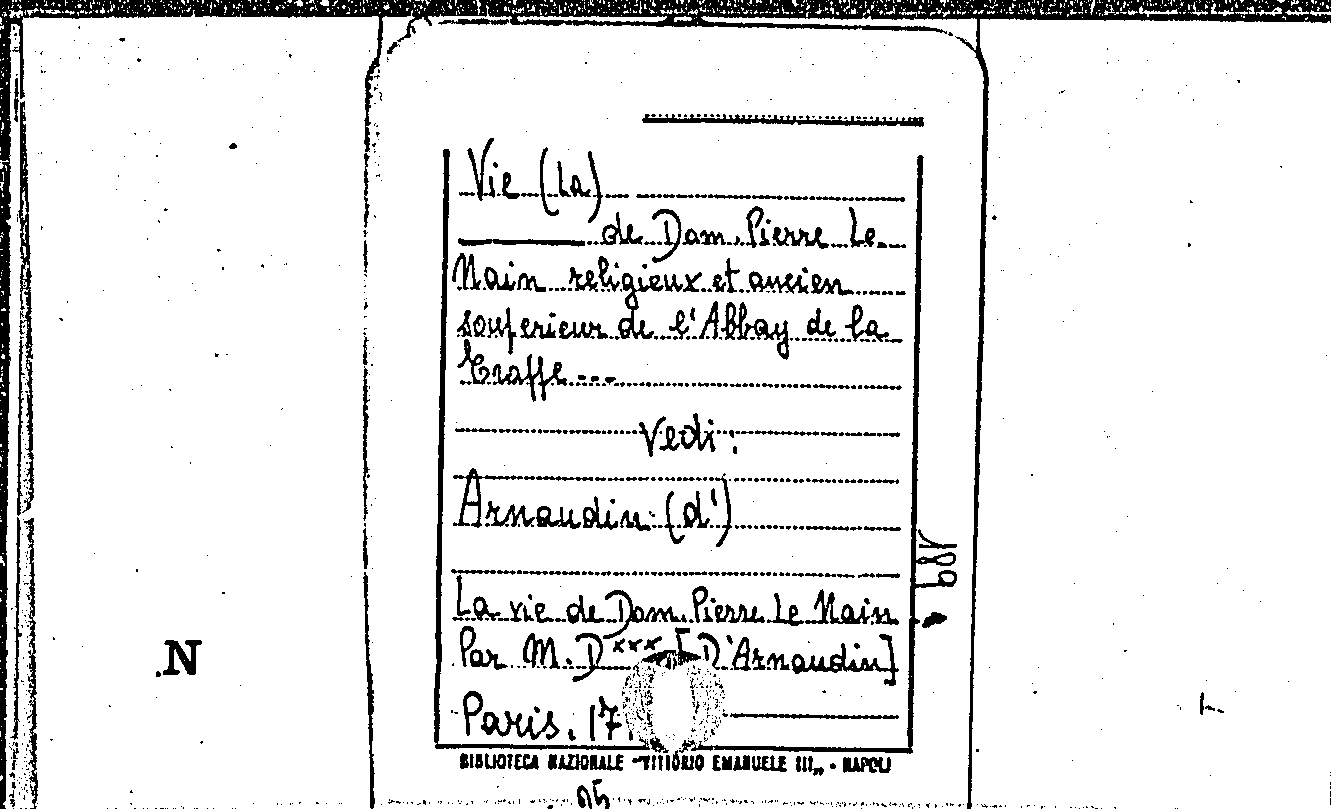 Vie (La)
de Dom. Pierre Le
Nain religieux et ancien
souperieur de l'Abbay de la
Traffe ---
Vedi:
Arnaudin (d')
La vie de Dom. Pierre Le Nain
Par M. D*** [D'Arnaudin]
Paris. 17
BIBLIOTECA NAZIONALE "VITTORIO EMANUELE III„ - NAPOLI
N